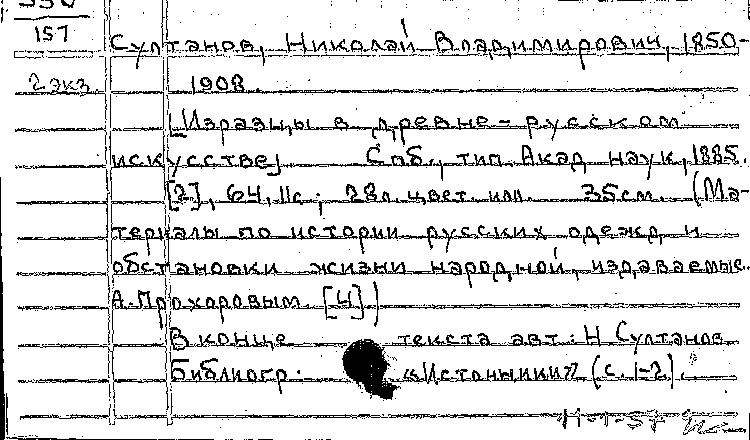 157
Султанов, Николай Владимирович, 1850-
2 экз. 1908.
[Изразцы в древне-русском
искусстве] Спб., тип. Акад. наук, 1885.
[2], 64, IIс; 28л. цвет. илл. 35см. (Ма-
териалы по истории русских одежд и
обстановки жизни народной, издаваемые
А. Прохоровым. [4].)
В конце текста авт.: Н Султанов
Библиогр.: «Источники» (с. 1-2).
11-1-57